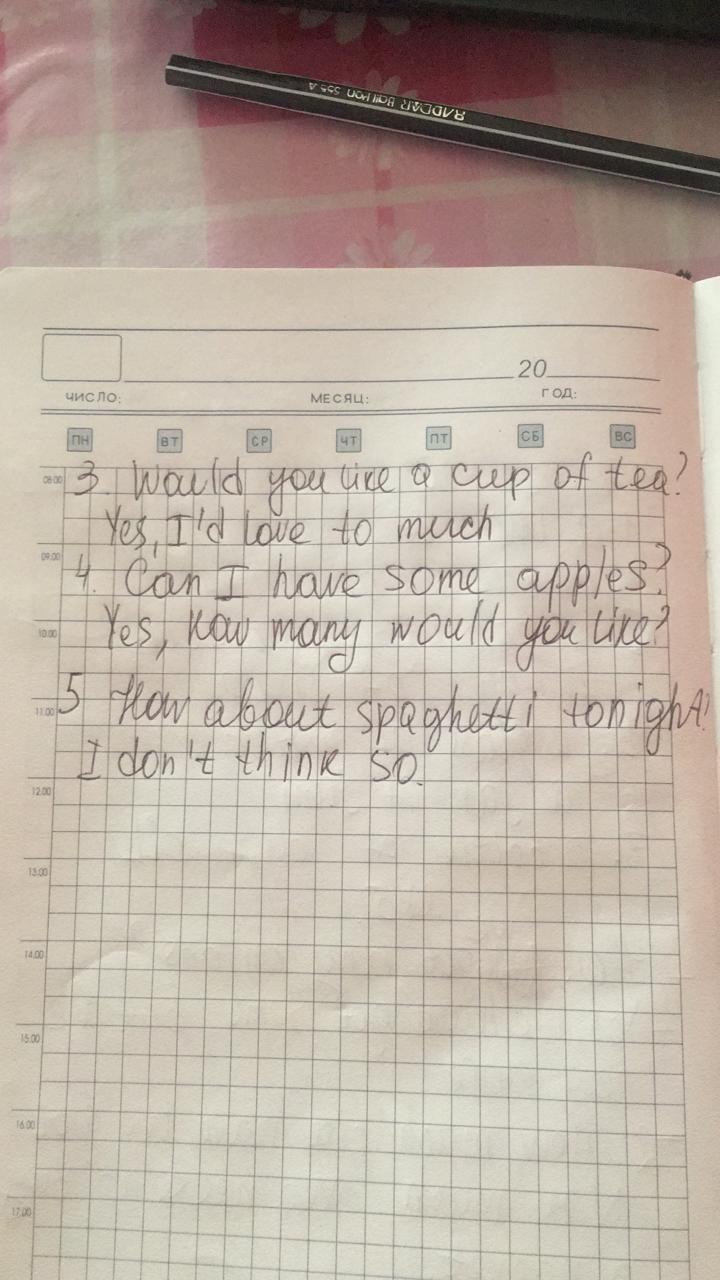 RADDAR Ball Pen 555 A
20
ЧИСЛО: МЕСЯЦ: ГОД:
ПН ВТ СР ЧТ ПТ СБ ВС
08:00 3. Would you like a cup of tea?
Yes, I'd love to much
09.00 4. Can I have some apples?
10.00 Yes, How many would you like?
11.00 5 How about spaghetti tonight?
I don't think so.
12.00
13.00
14.00
15.00
16.00
17.00